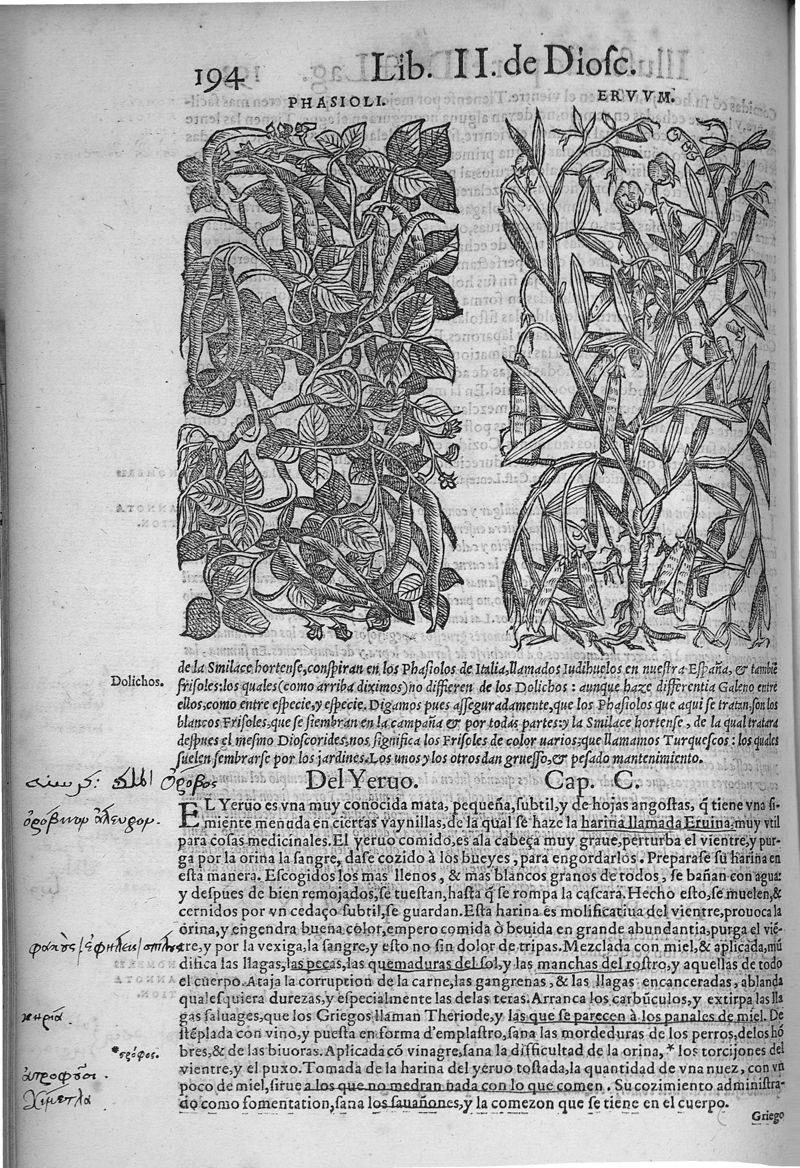 194
Lib. II. de Diosc.
PHASIOLI.
ERVVM.
de la Smilace hortense, conspiran en los Phasiolos de Italia, llamados Iudihuelos en nuestra España, & tambiē
Dolichos.
frisoles: los quales (como arriba diximos) no differen de los Dolichos: aunque haze differentia Galeno entre
ellos, como entre especie, y especie. Digamos pues asseguradamente, que los Phasiolos que aqui se tratan, son los
blancos Frisoles, que se siembran en la campaña & por todas partes: y la Smilace hortense, de la qual tratara
despues el mesmo Dioscorides, nos significa los Frisoles de color uarios: que llamamos Turquescos: los quales
suelen sembrarse por los jardines. Los unos y los otros dan gruesso, & pesado mantenimiento.
ὄροβος
Del Yeruo. Cap. C.
EL Yeruo es vna muy conocida mata, pequeña, subtil, y de hojas angostas, q̄ tiene vna si-
ὀρόβινον ἄλευρον.
miente menuda en ciertas vaynillas, de la qual se haze la harina llamada Eruina, muy vtil
para cosas medicinales. El yeruo comido, es a la cabeça muy graue, perturba el vientre, y pur-
ga por la orina la sangre, dase cozido à los bueyes, para engordarlos. Preparase su harina en
esta manera. Escogidos los mas llenos, & mas blancos granos de todos, se bañan con agua:
y despues de bien remojados, se tuestan, hasta q̄ se rompa la cascara. Hecho esto, se muelen, &
cernidos por vn cedaço subtil, se guardan. Esta harina es molificatiua del vientre, prouoca la
orina, y engendra buena color, empero comida ò beuida en grande abundantia, purga el viē-
tre, y por la vexiga, la sangre, y esto no sin dolor de tripas. Mezclada con miel, & aplicada, mū
difica las llagas, las pecas, las quemaduras del sol, y las manchas del rostro, y aquellas de todo
el cuerpo. Ataja la corruption de la carne, las gangrenas, & las llagas encanceradas, ablanda
qualesquiera durezas, y especialmente las delas tetas. Arranca los carbūculos, y extirpa las lla
κηρία.
gas saluages, que los Griegos llaman Theriode, y las que se parecen à los panales de miel. De
stēplada con vino, y puesta en forma d'emplastro, sana las mordeduras de los perros, de los hō
*στρόφος.
bres, & de las biuoras. Aplicada cō vinagre, sana la difficultad de la orina, * los torcijones del
vientre, y el puxo. Tomada de la harina del yeruo tostada, la quantidad de vna nuez, con vn
poco de miel, sirue a los que no medran nada con lo que comen. Su cozimiento administra-
χίμετλα
do como fomentation, sana los sauañones, y la comezon que se tiene en el cuerpo.
Griego